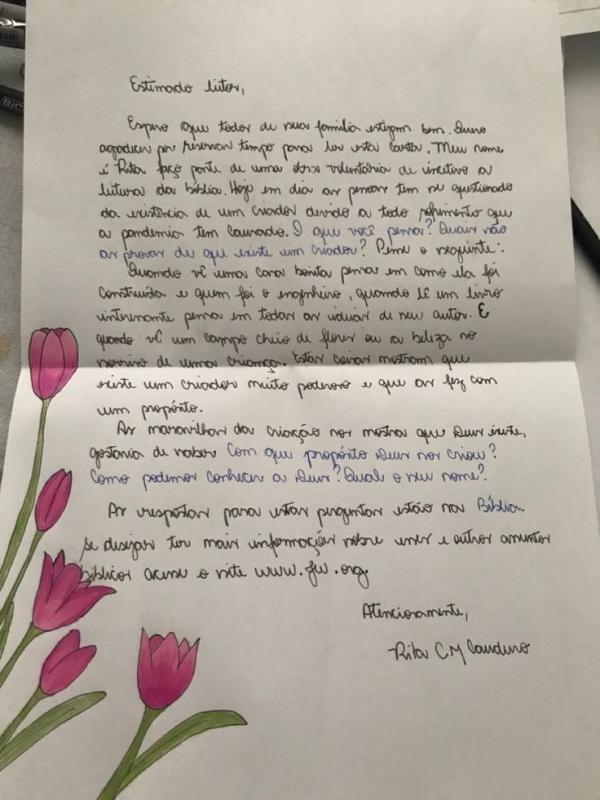 Estimado leitor,
Espero que todos de sua família estejam bem. Quero
agradecer por reservar tempo para ler esta carta. Meu nome
é Rita faço parte de uma obra voluntária de incetivo a
leitura da bíblia. Hoje em dia as pessoas tem se questionado
da existência de um criador devido a todo sofrimento que
a pandemia tem causado. O que você pensa? Quais são
as provas de que existe um criador? Pense o seguinte:
Quando vê uma casa bonita pensa em como ela foi
construída e quem foi o engenheiro, quando lê um livro
interessante pensa em todas as idéias de seu autor. E
quando vê um campo cheio de flores ou a beleza no
sorriso de uma criança. Estas coisas mostram que
existe um criador muito poderoso e que as fez com
um propósito.
As maravilhas da criação nos mostra que Deus existe,
gostaria de saber Com que propósito Deus nos criou?
Como podemos conhecer a Deus? Qual o seu nome?
As respostas para estas perguntas estão na Bíblia.
Se desejar ter mais informações sobre esses e outros assuntos
bíblicos acesse o site www.jw.org.
Atenciosamente,
Rita C M